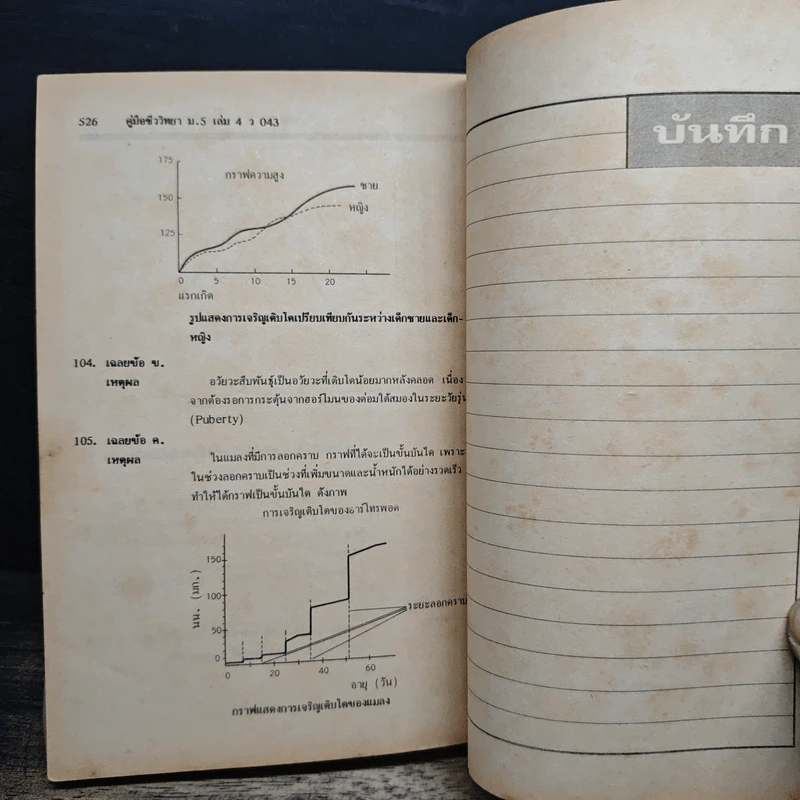 526 คู่มือชีววิทยา ม.5 เล่ม 4 ว 043
บันทึก
175
กราฟความสูง
ชาย
150
หญิง
125
0 5 10 15 20
แรกเกิด
รูปแสดงการเจริญเติบโตเปรียบเทียบกันระหว่างเด็กชายและเด็ก-
หญิง
104. เฉลยข้อ ข.
เหตุผล อวัยวะสืบพันธุ์เป็นอวัยวะที่เติบโตน้อยมากหลังคลอด เนื่อง
จากต้องรอการกระตุ้นจากฮอร์โมนของต่อมใต้สมองในระยะวัยรุ่น
(Puberty)
105. เฉลยข้อ ค.
เหตุผล ในแมลงที่มีการลอกคราบ กราฟที่ได้จะเป็นขั้นบันได เพราะ
ในช่วงลอกคราบเป็นช่วงที่เพิ่มขนาดและน้ำหนักได้อย่างรวดเร็ว
ทำให้ได้กราฟเป็นขั้นบันได ดังภาพ
การเจริญเติบโตของอาร์โทรพอด
นน. (มก.)
150
100
50
0
ระยะลอกคราบ
0 20 40 60
อายุ (วัน)
กราฟแสดงการเจริญเติบโตของแมลง